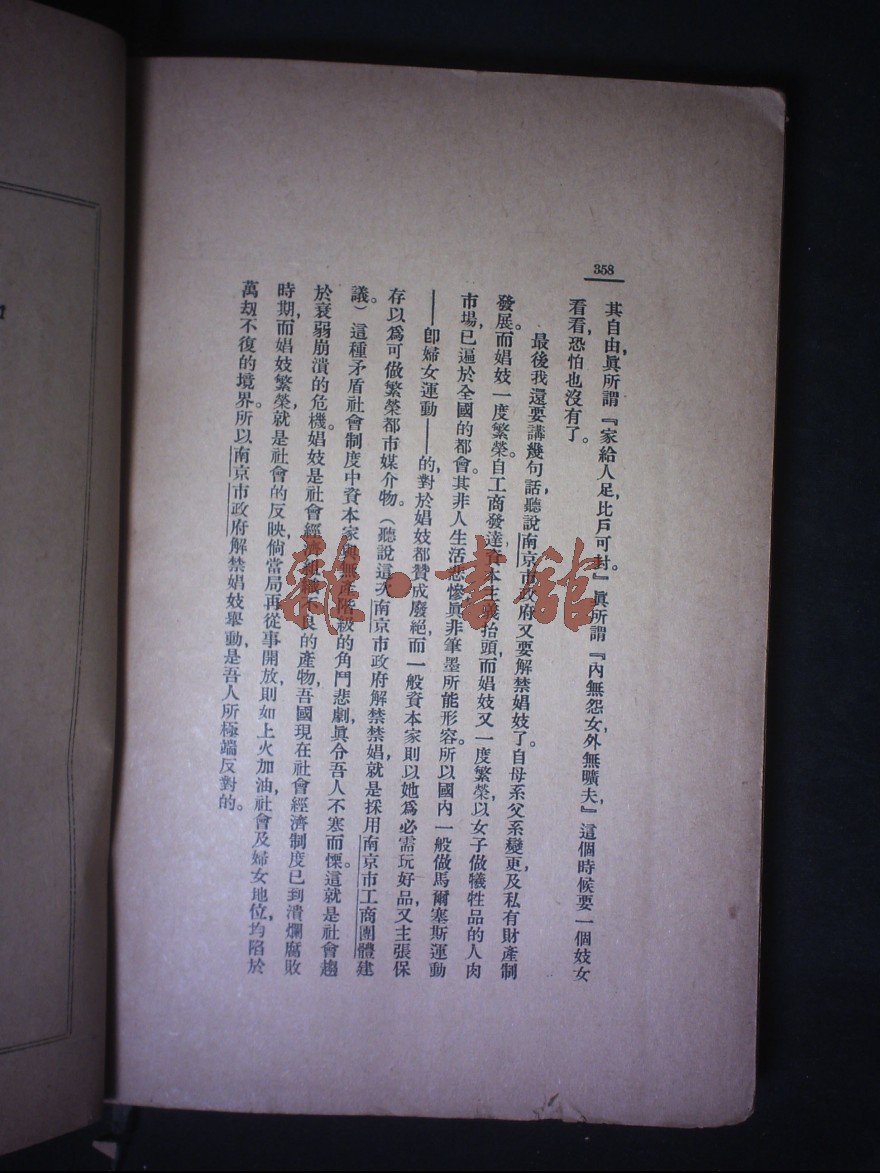 358
其自由，眞所謂『家給人足，比戶可封』。眞所謂『內無怨女，外無曠夫』這個時候要一個妓女
看看，恐怕也沒有了。
最後我還要講幾句話，聽說南京市政府又要解禁娼妓了。自母系父系變更，及私有財產制
發展。而娼妓一度繁榮。自工商發達，資本主義抬頭，而娼妓又一度繁榮，以女子做犧牲品的人肉
市場，已遍於全國的都會。其非人生活悲慘眞非筆墨所能形容。所以國內一般做馬爾塞斯運動
——卽婦女運動——的，對於娼妓都贊成廢絕，而一般資本家則以她爲必需玩好品，又主張保
存以爲可做繁榮都市媒介物。（聽說這次南京市政府解禁禁娼，就是採用南京市工商團體建
議。）這種矛盾社會制度中資本家與無產階級的角鬥悲劇，眞令吾人不寒而慄。這就是社會趨
於衰弱崩潰的危機。娼妓是社會經濟組織不良的產物，吾國現在社會經濟制度已到潰爛腐敗
時期，而娼妓繁榮，就是社會的反映，倘當局再從事開放，則如上火加油，社會及婦女地位，均陷於
萬刼不復的境界。所以南京市政府解禁娼妓舉動，是吾人所極端反對的。
雜·書館